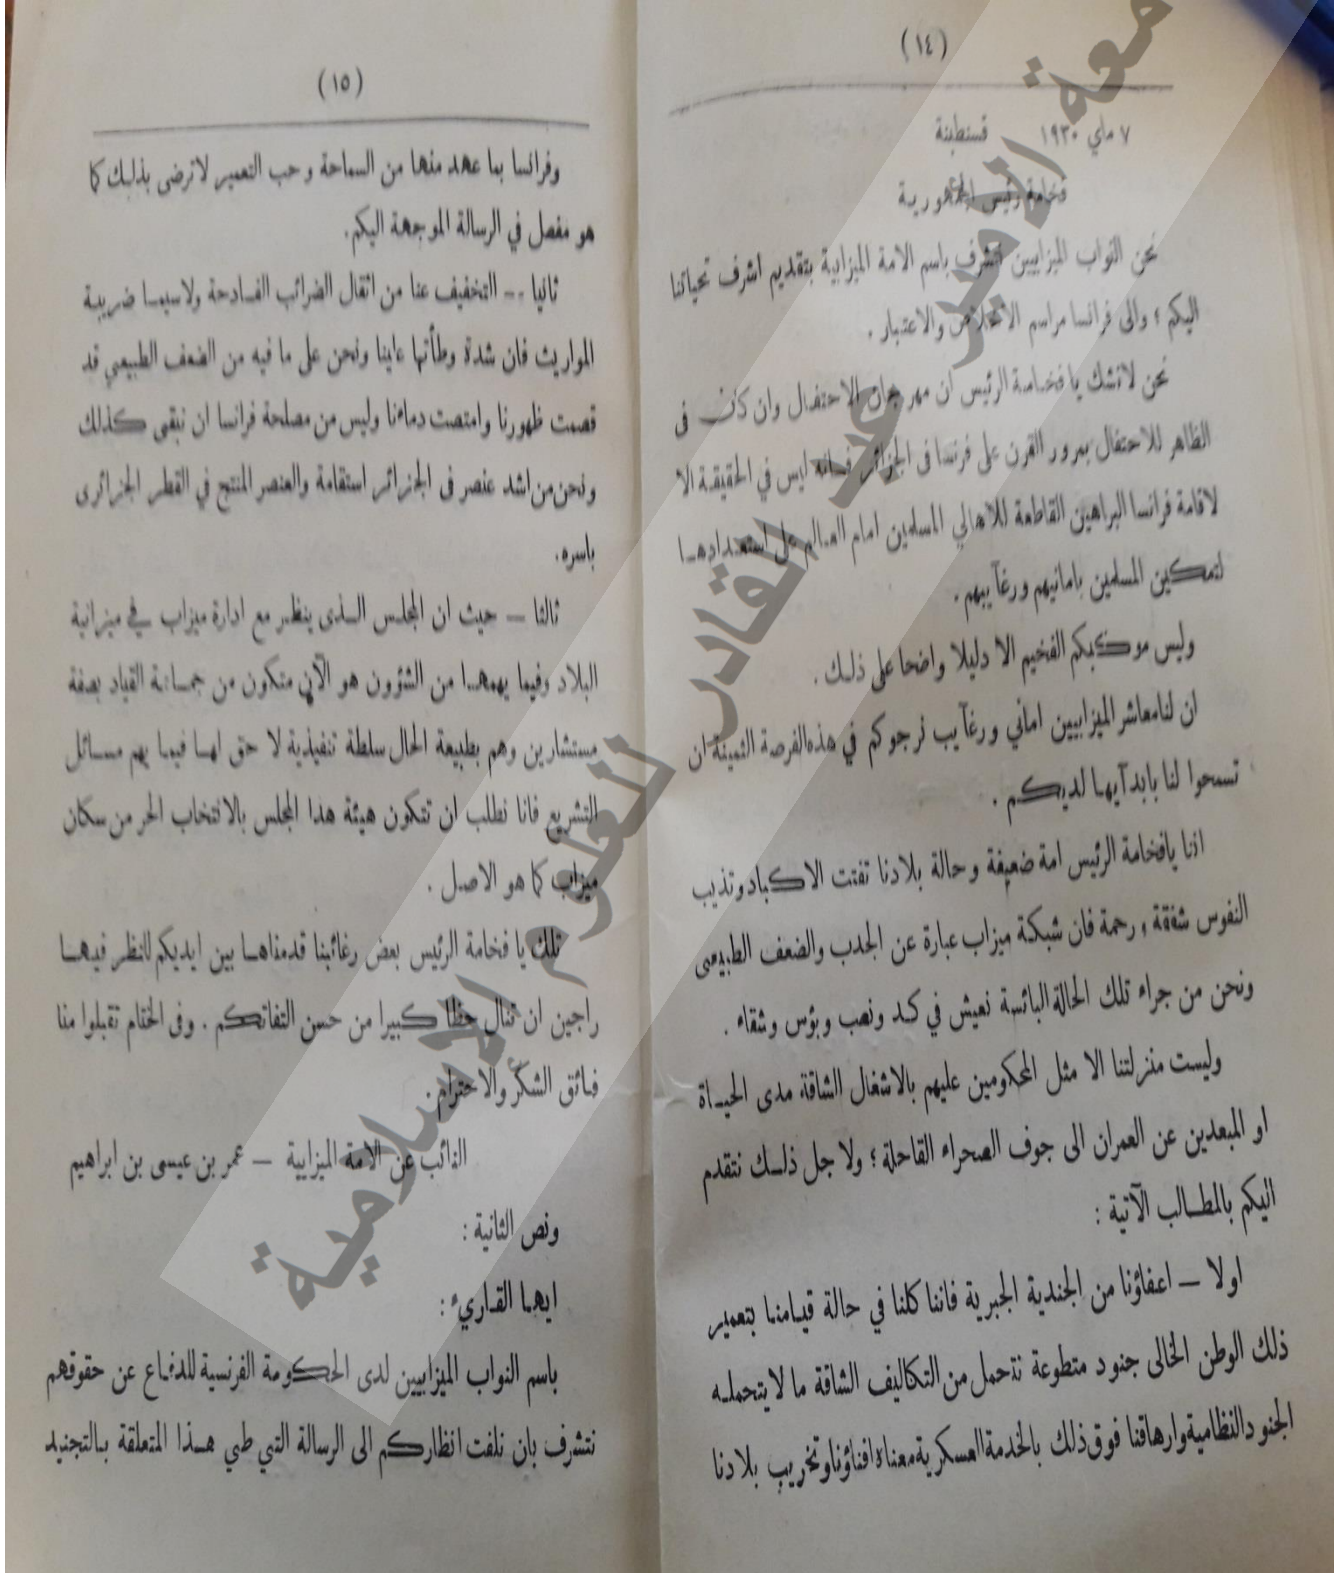 (١٤)
٧ ماي ١٩٣٠ قسنطينة
فخامة رئيس الجمهورية
نحن النواب الميزابيين نتشرف باسم الامة الميزابية بتقديم اشرف تحياتنا
اليكم ؛ والى فرانسا مراسم الاخلاص والاعتبار .
نحن لانشك يا فخامة الرئيس ان مهرجان الاحتفال وان كان فى
الظاهر للاحتفال بمرور القرن على فرنسا فى الجزائر فانه ليس في الحقيقة الا
لاقامة فرانسا البراهين القاطعة للاهالي المسلمين امام العالم على استعدادها
لتمكين المسلمين بامانيهم ورغآيبهم .
وليس موكبكم الفخيم الا دليلا واضحا على ذلك .
ان لنا معاشر الميزابيين اماني ورغآيب نرجوكم في هذه الفرصة الثمينة ان
تسمحوا لنا بابدآيها لديكم .
اننا يافخامة الرئيس امة ضعيفة وحالة بلادنا تفتت الاكباد وتذيب
النفوس شفقة ورحمة فان شبكة ميزاب عبارة عن الجدب والضعف الطبيعى
ونحن من جراء تلك الحالة البائسة نعيش في كد ونصب وبؤس وشقاء .
وليست منزلتنا الا مثل المحكومين عليهم بالاشغال الشاقة مدى الحياة
او المبعدين عن العمران الى جوف الصحراء القاحلة ؛ ولاجل ذلك نتقدم
اليكم بالمطالب الآتية :
اولا — اعفاؤنا من الجندية الجبرية فاننا كلنا في حالة قيامنا بتعمير
ذلك الوطن الخالى جنود متطوعة نتحمل من التكاليف الشاقة ما لا يتحمله
الجنود النظامية وارهاقنا فوق ذلك بالخدمة العسكرية معناه افناؤنا وتخريب بلادنا
(١٥)
وفرانسا بما عهد منها من السماحة وحب التعمير لاترضى بذلك كما
هو مفصل في الرسالة الموجهة اليكم.
ثانيا -- التخفيف عنا من اثقال الضرائب الفادحة ولاسيما ضريبة
المواريث فان شدة وطأتها علينا ونحن على ما فيه من الضعف الطبيعي قد
قصمت ظهورنا وامتصت دماءنا وليس من مصلحة فرانسا ان نبقى كذلك
ونحن من اشد عنصر فى الجزائر استقامة والعنصر المنتج في القطر الجزائرى
باسره.
ثالثا — حيث ان المجلس الذى ينظر مع ادارة ميزاب في ميزانية
البلاد وفيما يهمها من الشؤون هو الآن متكون من جماعة القياد بصفة
مستشارين وهم بطبيعة الحال سلطة تنفيذية لا حق لها فيما يهم مسائل
التشريع فانا نطلب ان تتكون هيئة هذا المجلس بالانتخاب الحر من سكان
ميزاب كما هو الاصل .
تلك يا فخامة الرئيس بعض رغائبنا قدمناها بين ايديكم للنظر فيها
راجين ان تنال حظا كبيرا من حسن التفاتكم . وفى الختام تقبلوا منا
فائق الشكر والاحترام .
النائب عن الامة الميزابية — عمر بن عيسى بن ابراهيم
ونص الثانية :
ايها القارىء :
باسم النواب الميزابيين لدى الحكومة الفرنسية للدفاع عن حقوقهم
نتشرف بان نلفت انظاركم الى الرسالة التي طي هذا المتعلقة بالتجنيد
جامعة الأمير عبد القادر للعلوم الإسلامية